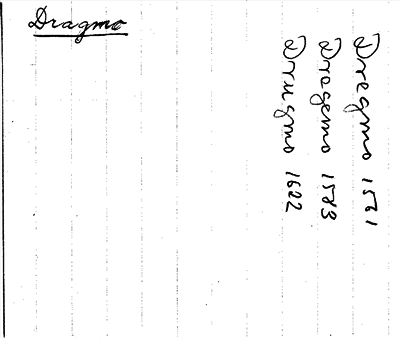 Dragmo
Dregmo 1561
Drogemo 1583
Drugmo 1622